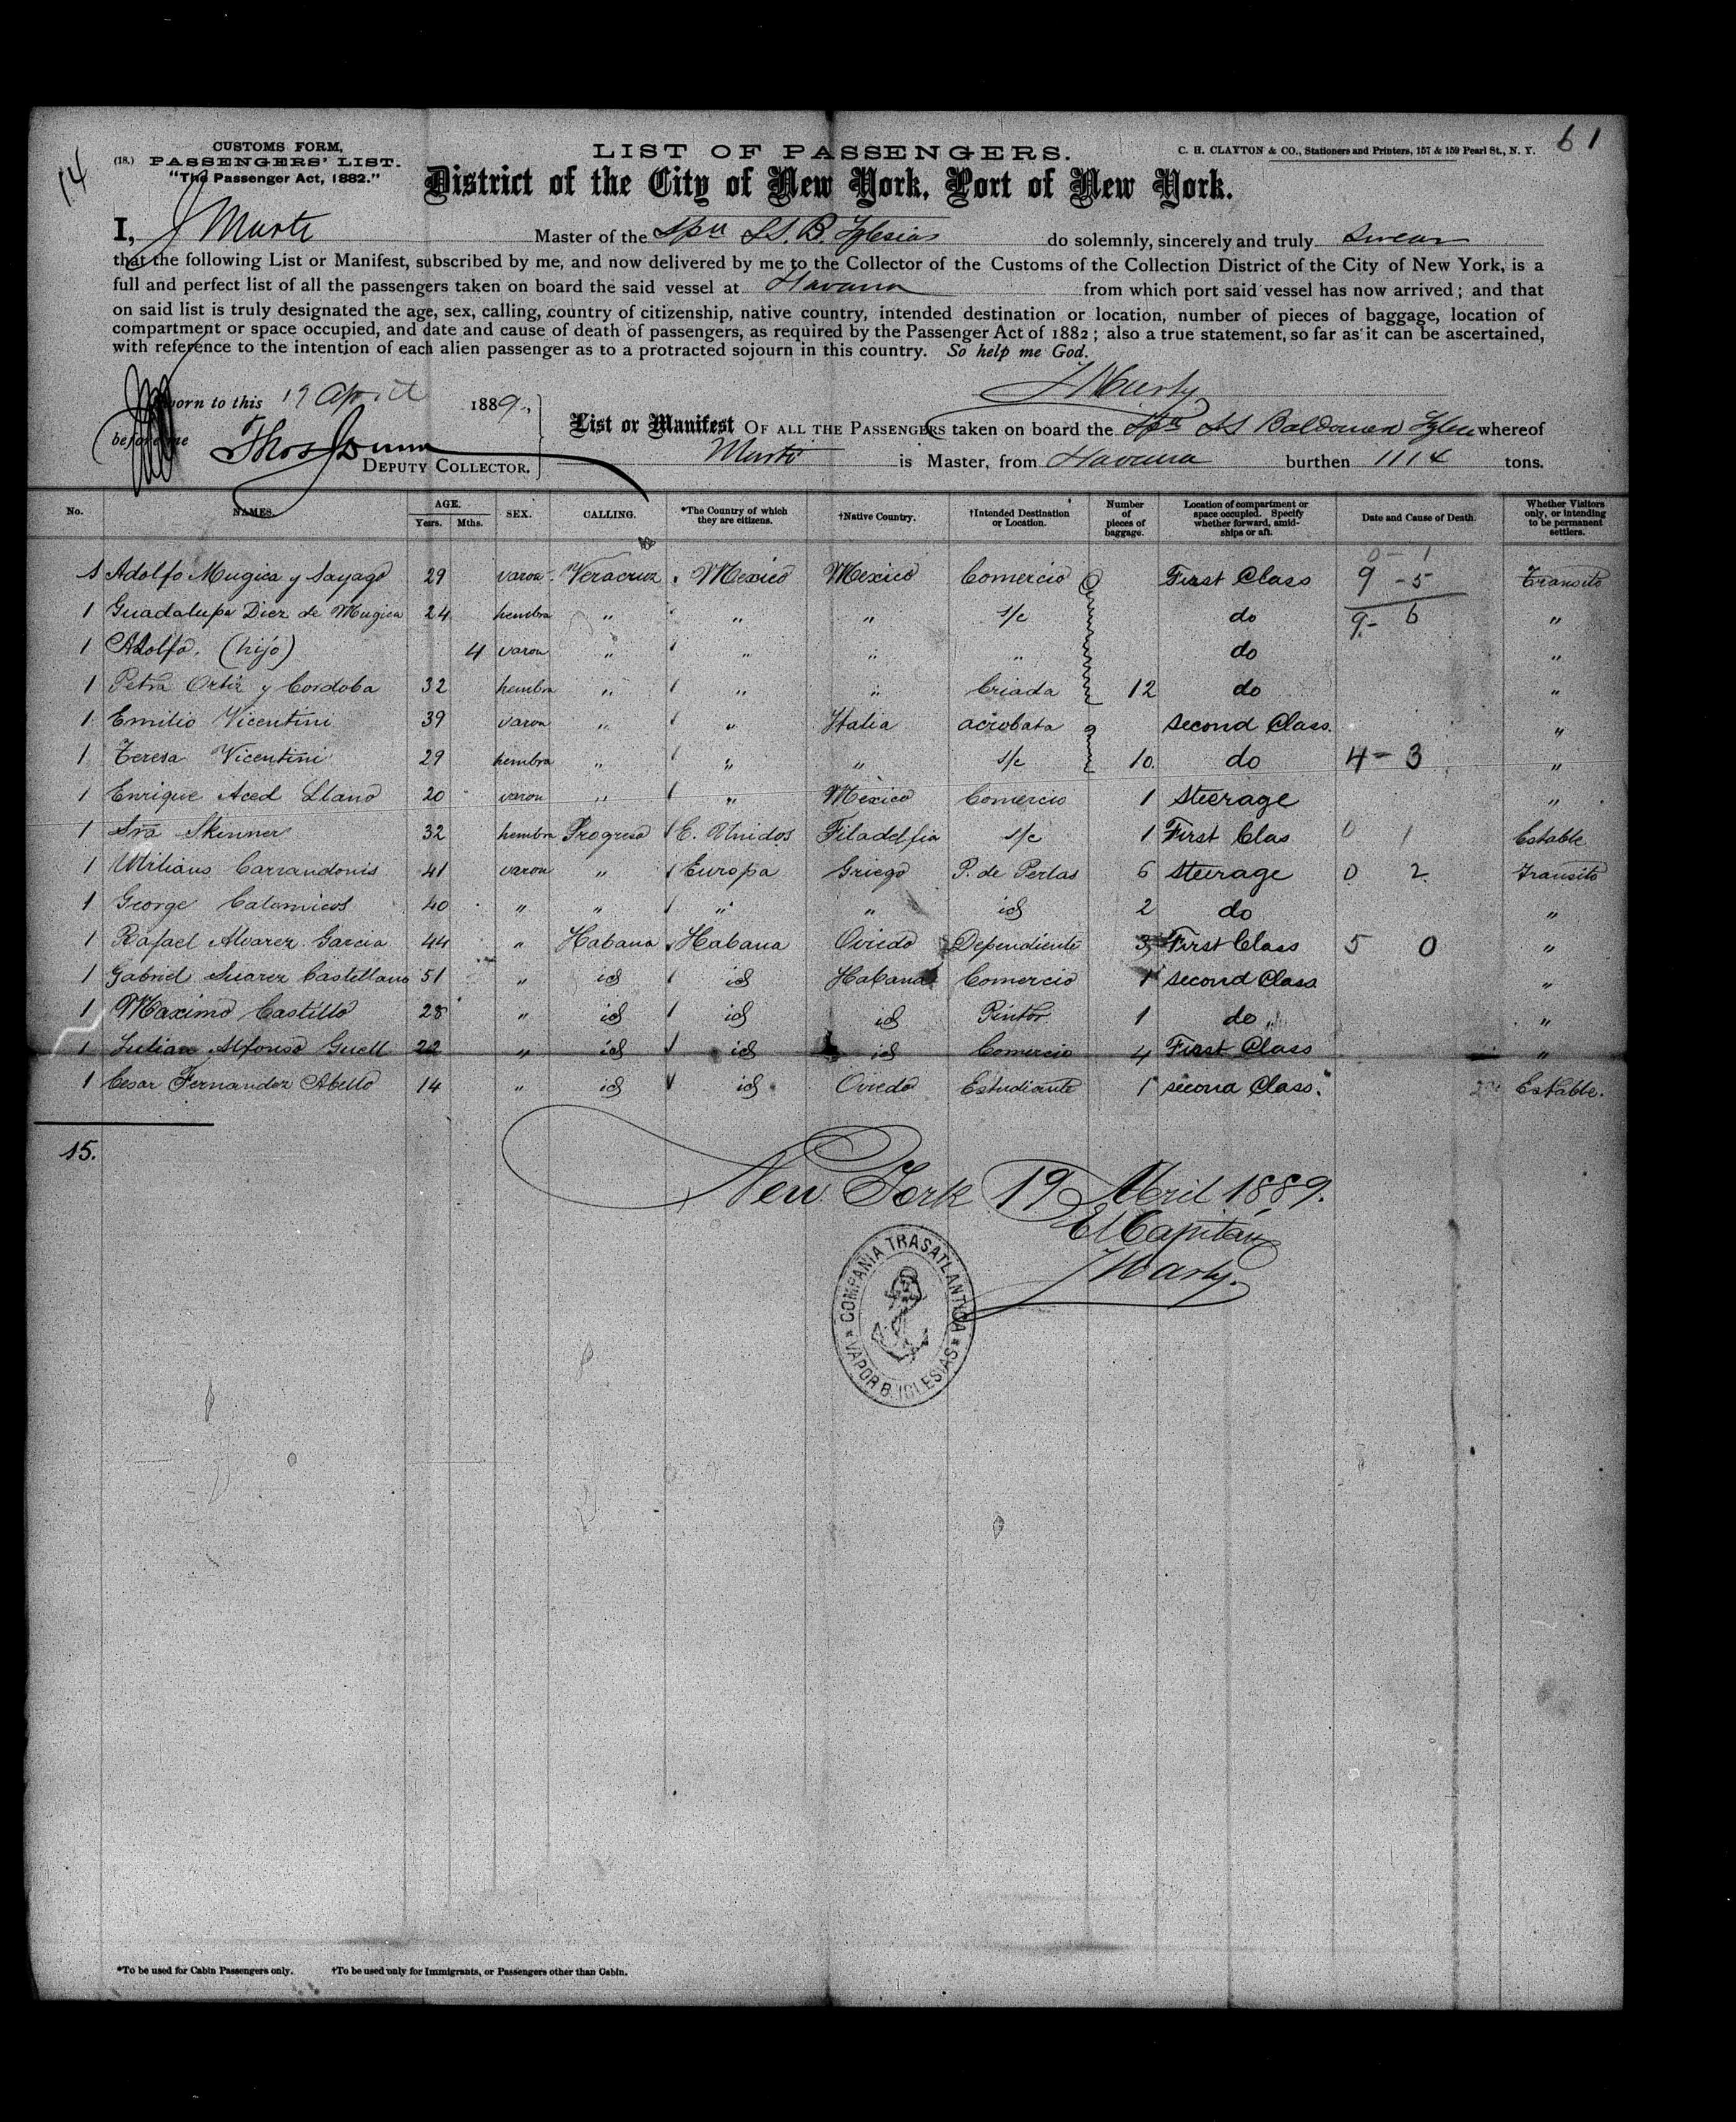 14
61
CUSTOMS FORM,
(18.) PASSENGERS' LIST.
"The Passenger Act, 1882."
LIST OF PASSENGERS.
C. H. CLAYTON & CO., Stationers and Printers, 157 & 159 Pearl St., N. Y.
District of the City of New York, Port of New York.
I, J Marti Master of the Spn SS. B. Iglesias do solemnly, sincerely and truly swear
that the following List or Manifest, subscribed by me, and now delivered by me to the Collector of the Customs of the Collection District of the City of New York, is a
full and perfect list of all the passengers taken on board the said vessel at Havana from which port said vessel has now arrived; and that
on said list is truly designated the age, sex, calling, country of citizenship, native country, intended destination or location, number of pieces of baggage, location of
compartment or space occupied, and date and cause of death of passengers, as required by the Passenger Act of 1882; also a true statement, so far as it can be ascertained,
with reference to the intention of each alien passenger as to a protracted sojourn in this country. So help me God.
Sworn to this 19 April 1889.,
before me
Thos Dunn
DEPUTY COLLECTOR.
List or Manifest OF ALL THE PASSENGERS taken on board the Spn SS whereof
Marti is Master, from Havana burthen 1114 tons.
No. NAMES. AGE. Years. Mths. SEX. CALLING. *The Country of which they are citizens. †Native Country. †Intended Destination or Location. Number of pieces of baggage. Location of compartment or space occupied. Specify whether forward, amidships or aft. Date and Cause of Death. Whether Visitors only, or intending to be permanent settlers.
0 - 1
1 Adolfo Mugica y Sayago 29 varon Veracruz Mexico Mexico Comercio First Class 9 - 5 Transito
1 Guadalupe Diez de Mugica 24 hembra " " " s/c do 9 - 6 "
1 Adolfo. (hijo) 4 varon " " " " do "
1 Petra Ortiz y Cordoba 32 hembra " " " Criada 12 do "
1 Emilio Vicentini 39 varon " " Italia acrobata second Class. "
1 Teresa Vicentini 29 hembra " " " s/c 10 do 4 - 3 "
1 Enrique Aced Llano 20 varon " " Mexico Comercio 1 steerage "
1 Sra Skinner 32 hembra Progreso E. Unidos Filadelfia s/c 1 First Clas 0 1 Estable
1 Carrandonis 41 varon " Europa Griego P. de Perlas 6 steerage 0 2 Transito
1 George Calamicos 40 " " " " id 2 do "
1 Rafael Alvarez Garcia 44 " Habana Habana Oviedo Dependiente 3 First Class 5 0 "
1 Gabriel Suarez Castellano 51 " id id Habana Comercio 1 second Class "
1 Maximo Castillo 28 " id id id Pintor 1 do "
1 Julian Alfonso Guell 22 " id id id Comercio 4 First Class "
1 Cesar Fernandez Abello 14 " id id Oviedo Estudiante 1 second Class. Estable.
15.
New York 19 Abril 1889.
El Capitan
J Marty.
COMPAÑIA TRASATLANTICA
VAPOR B. IGLESIAS
*To be used for Cabin Passengers only. †To be used only for Immigrants, or Passengers other than Cabin.